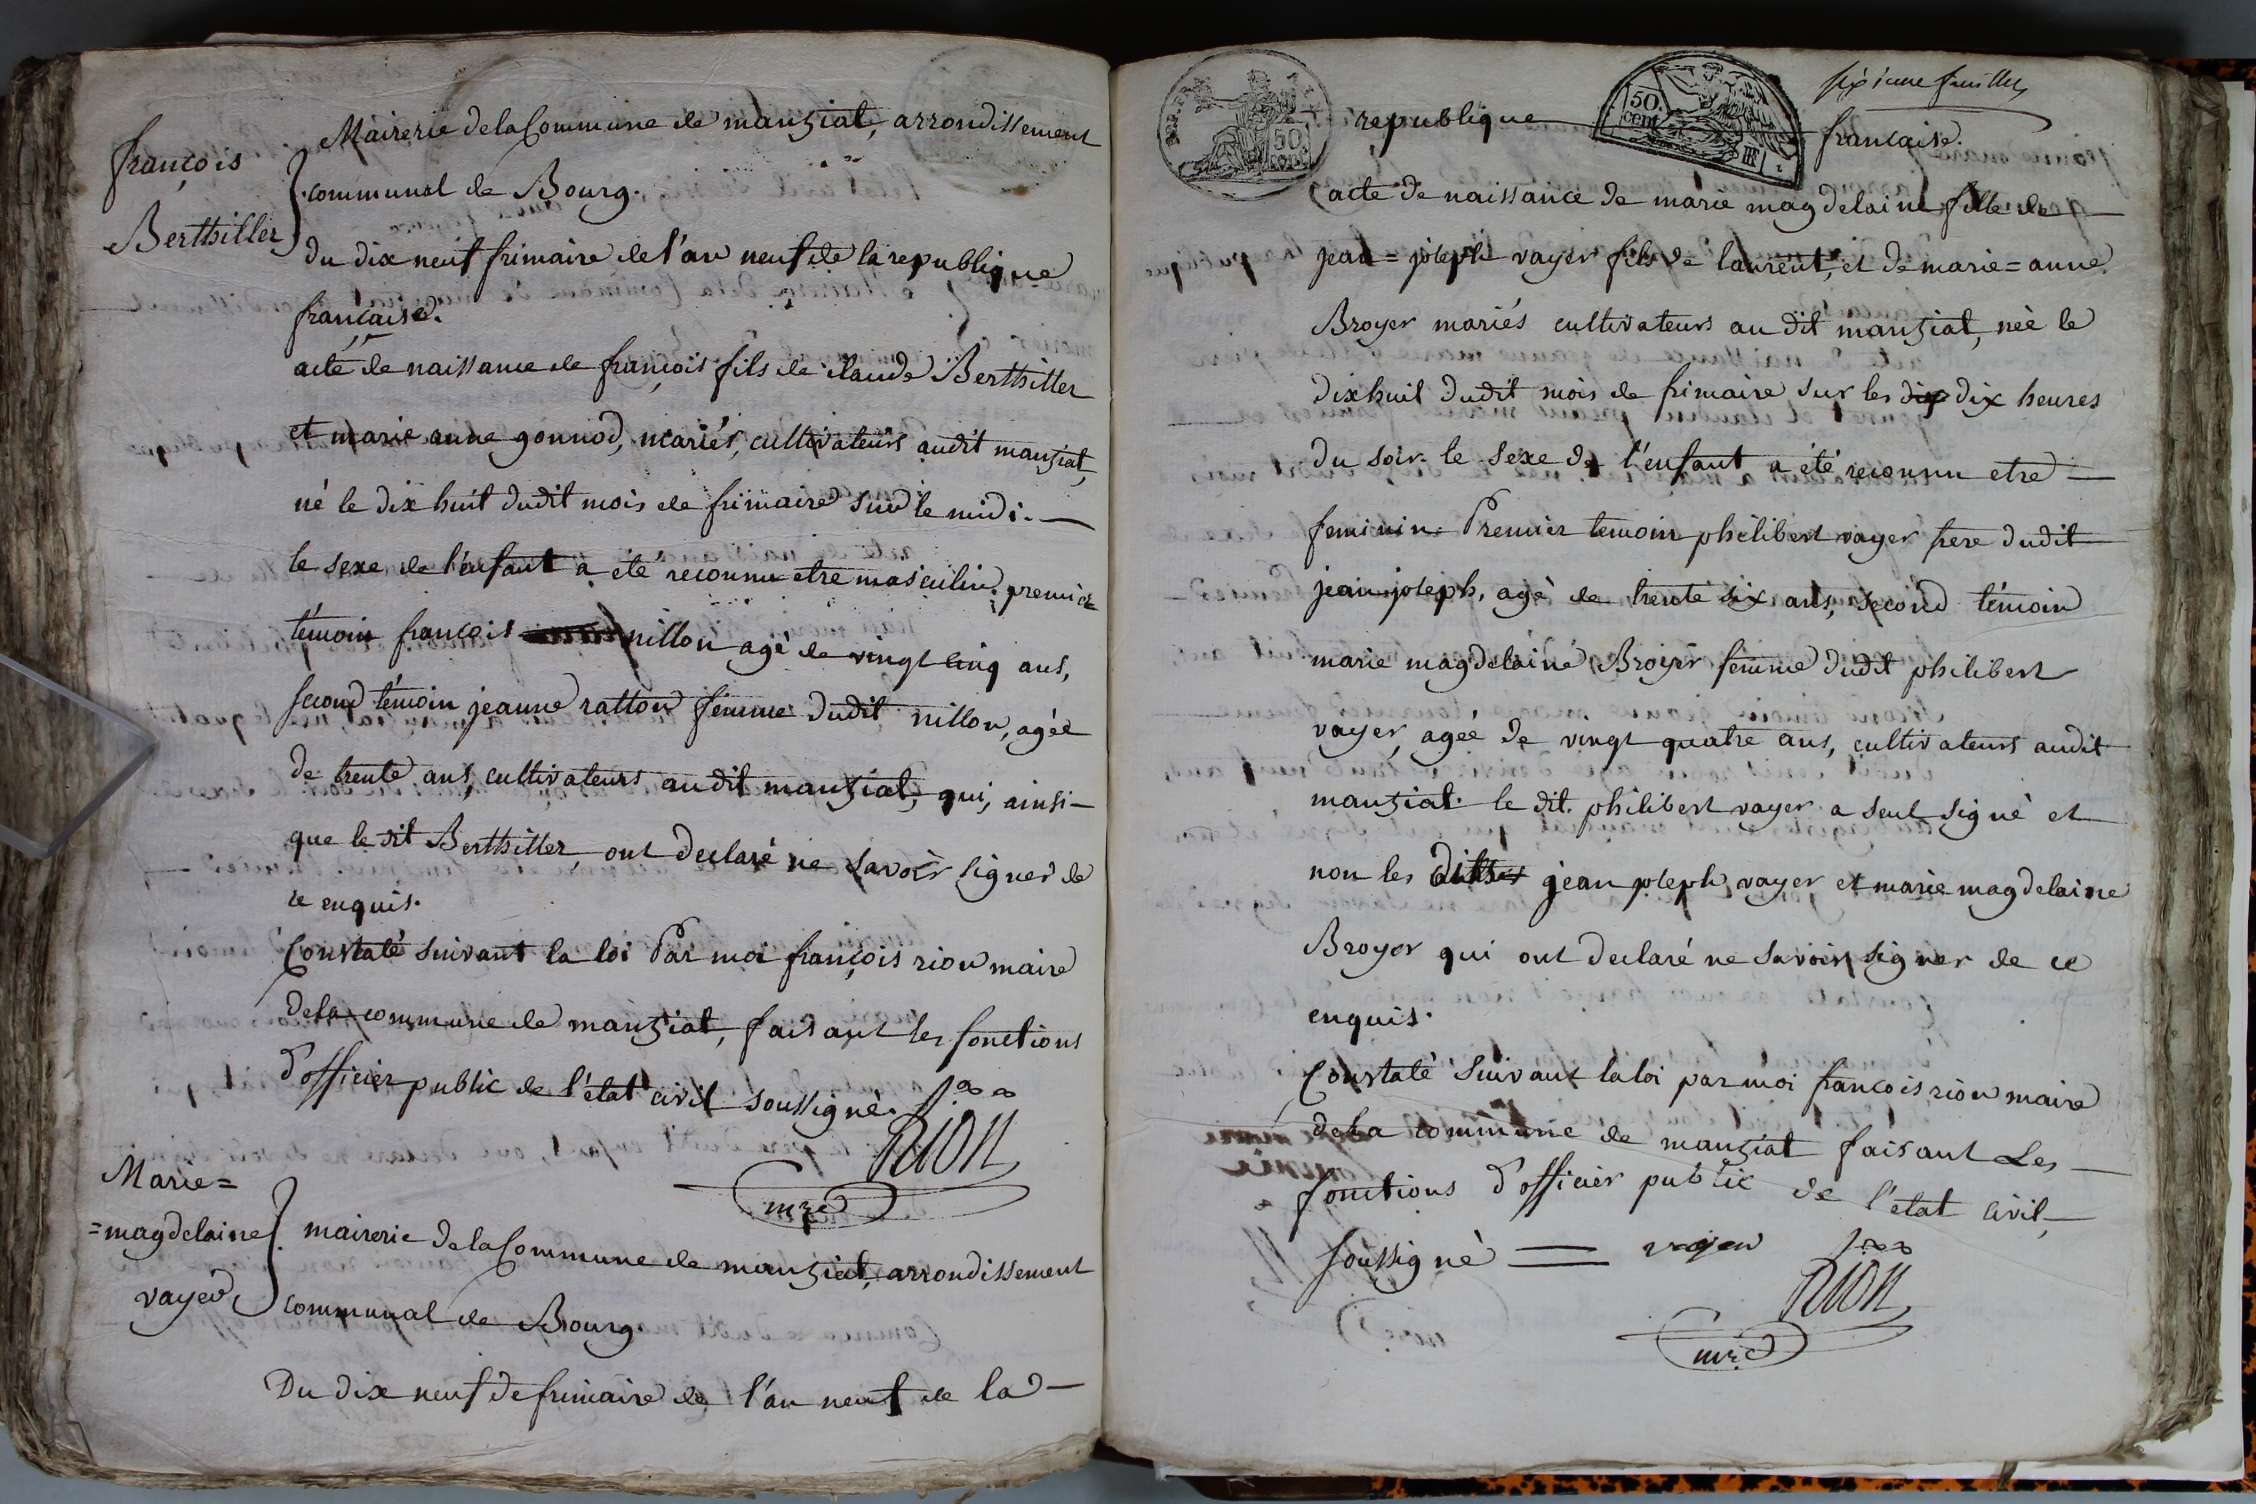 françois
Berthiller
Mairerie de la Commune de manziat, arrondissement
communal de Bourg.
du dix neuf frimaire de l'an neuf de la republique
française.
acte de naissance de françois fils de claude Berthiller
et marie anne gonnod, mariés, cultivateurs audit manziat,
né le dix huit dudit mois de frimaire sur le midi. —
le sexe de l'enfant a été reconnu etre masculin. premier
témoin françois nillon agé de vingt cinq ans,
second témoin jeanne ratton femme dudit nillon, agée
de trente ans, cultivateurs audit manziat, qui, ainsi —
que le dit Berthiller, ont declaré ne savoir signer de
ce enquis.
Constaté suivant la loi Par moi françois rion maire
de la commune de manziat, faisant les fonctions
d'officier public de l'état civil soussigné.
Rion
mre
Marie=
=magdelaine
vayer
mairerie de la Commune de manziat, arrondissement
communal de Bourg.
Du dix neuf de frimaire de l'an neuf de la —
sixième feuillet
50 cent
republique française.
acte de naissance de marie magdelaine fille de —
jean=joseph vayer fils de laurent, et de marie=anne
Broyer mariés cultivateurs audit manziat, née le
dixhuit dudit mois de frimaire sur les dix dix heures
du soir. le sexe de l'enfant a été reconnu etre —
feminin. Premier temoin philibert vayer frere dudit
jean joseph, agé de trente six ans, second témoin
marie magdelaine Broyer femme dudit philibert
vayer, agée de vingt quatre ans, cultivateurs audit
manziat. le dit philibert vayer a seul signé et
non les jean joseph vayer et marie magdelaine
Broyer qui ont declaré ne savoir signer de ce
enquis.
Constaté suivant la loi par moi françois rion maire
de la commune de manziat faisant Les —
fonctions d'officier public de l'etat civil,
soussigné = vayer
Rion
mre